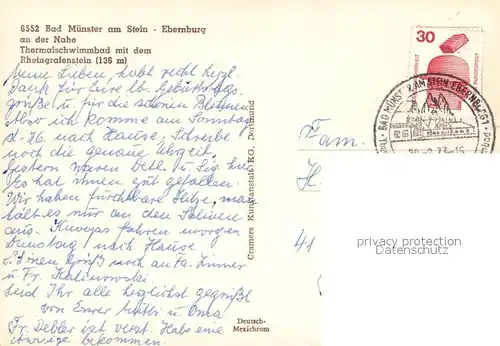 6552 Bad Münster am Stein - Ebernburg
an der Nahe
Thermalschwimmbad mit dem
Rheingrafenstein (136 m)
Meine Lieben, habt recht herzl.
Dank für Eure lb. Geburtstags-
grüße u. für die schönen Blumen.
Also ich komme am Sonntag
d. 26. nach Hause. Schreibe
noch die genaue Uhrzeit.
Gestern waren Detl. u. Sig. hier
Es hat ihnen gut gefallen.
Wir haben fürchtbare Hitze, man
hält es nur an den Salinen
aus. fahren morgen
Dienstag nach Hause
Einen Gruß noch an Fa. Zimner
u. Fr. Kalinowski.
Seid Ihr alle herzlichst gegrüßt
von Eurer Mutti u. Oma
Fr. Debler ist verst. Habe eine
Anzeige bekommen.
Cramers Kunstanstalt KG, Dortmund
Deutsch-
Mexichrom
30
DEUTSCHE BUNDESPOST
BAD MÜNSTER AM STEIN-EBERNBURG 1
-8.73-16
Fam.
H
41
property of
www.ansichtskarten-center.de
watermark protected